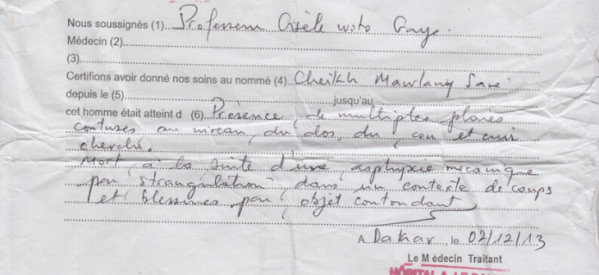 Nous soussignés (1) Professeur Gisèle Woto Gaye.
Médecin (2)
(3)
Certifions avoir donné nos soins au nommé (4) Cheikh Mawlany Sané
depuis le (5) jusqu'au
cet homme était atteint d (6) Présence, de multiples plaies
contuses au niveau, du dos, du, cou et cuir
chevelu.
Mort, à la suite d'une, asphyxie mécanique
par strangulation, dans un contexte de coups
et blessures par, objet contondant
A Dakar le 02/12/13
Le Médecin Traitant
HÔPITAL A. LE